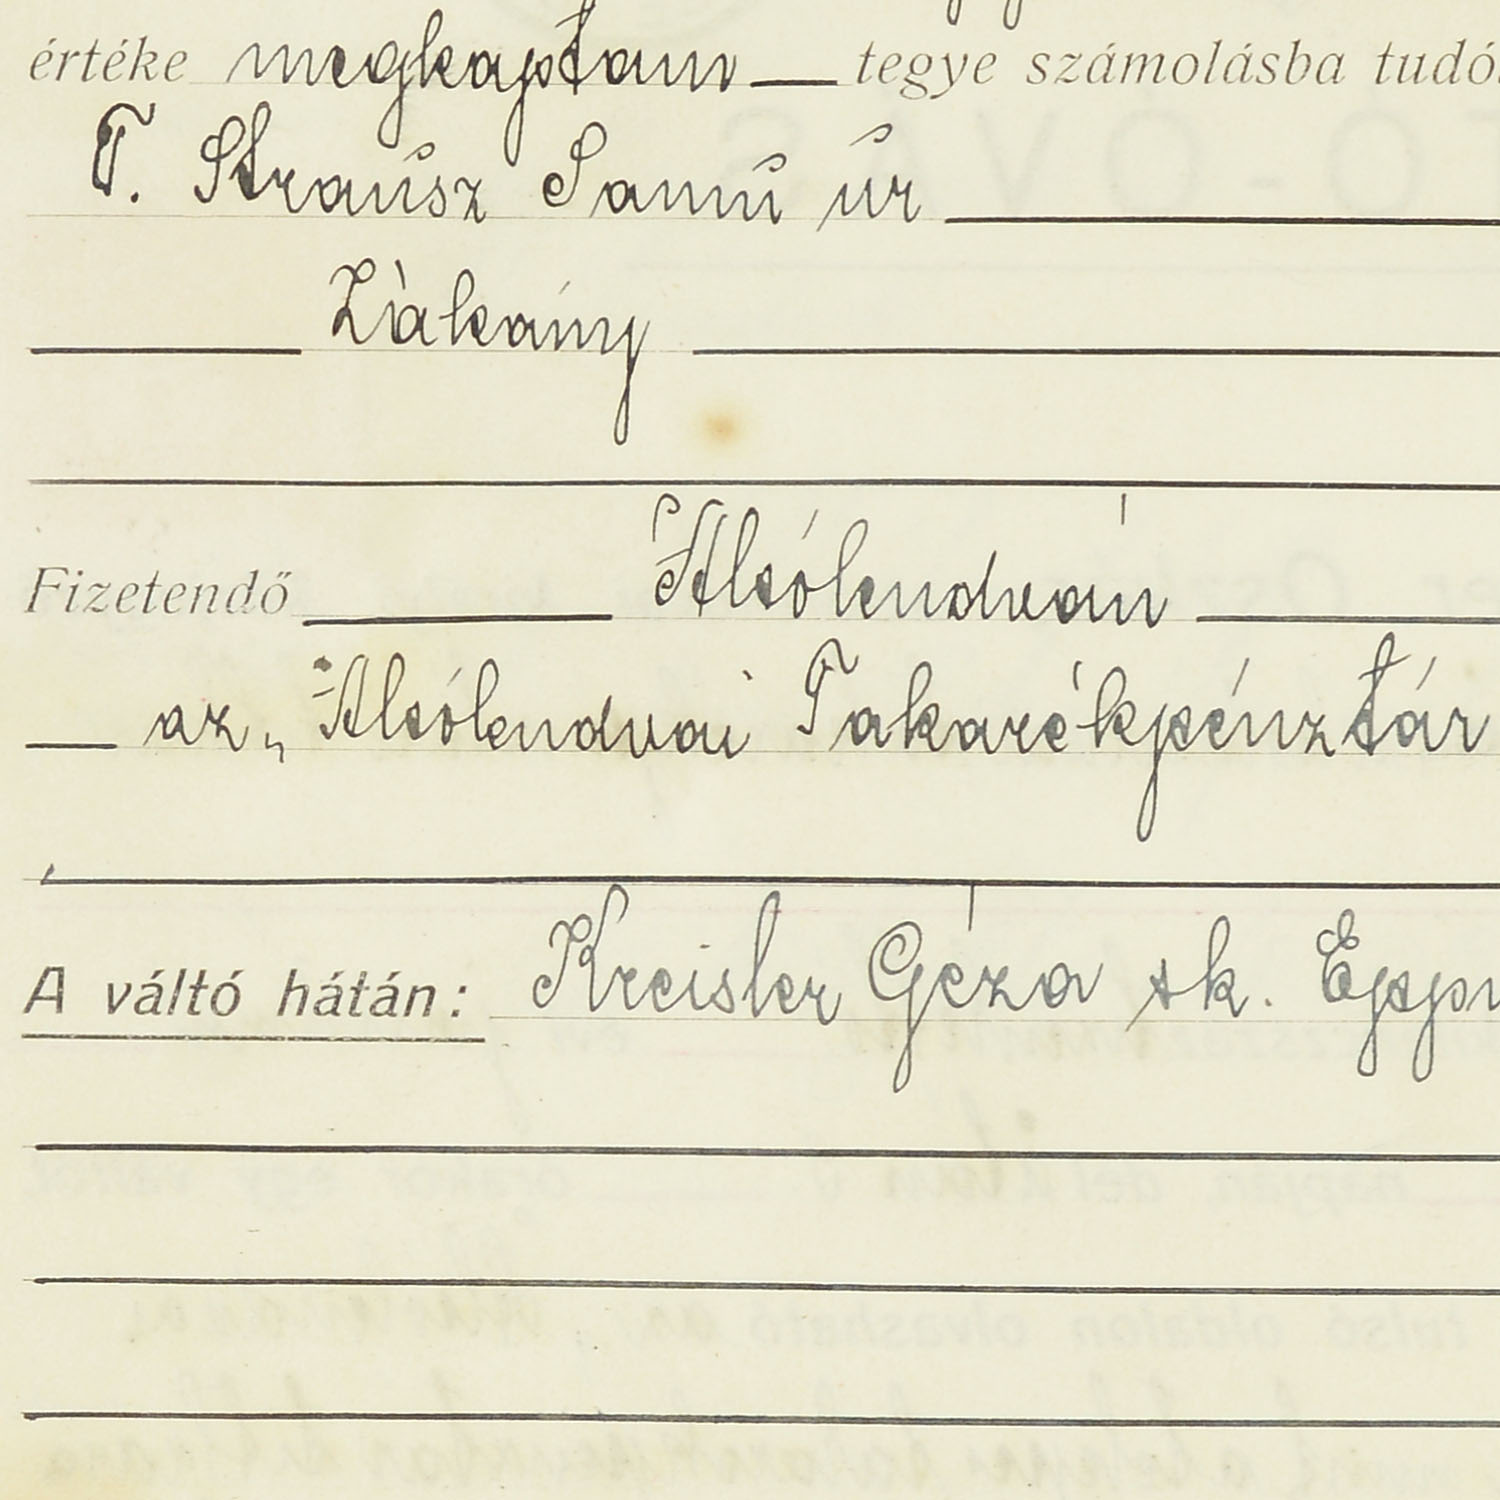 értéke megkaptam — tegye számolásba
T. Strausz Samú úr
Zákány
Fizetendő Alsólendván
az „Alsólendvai Takarékpénztár
A váltó hátán: Kreisler Géza sk.